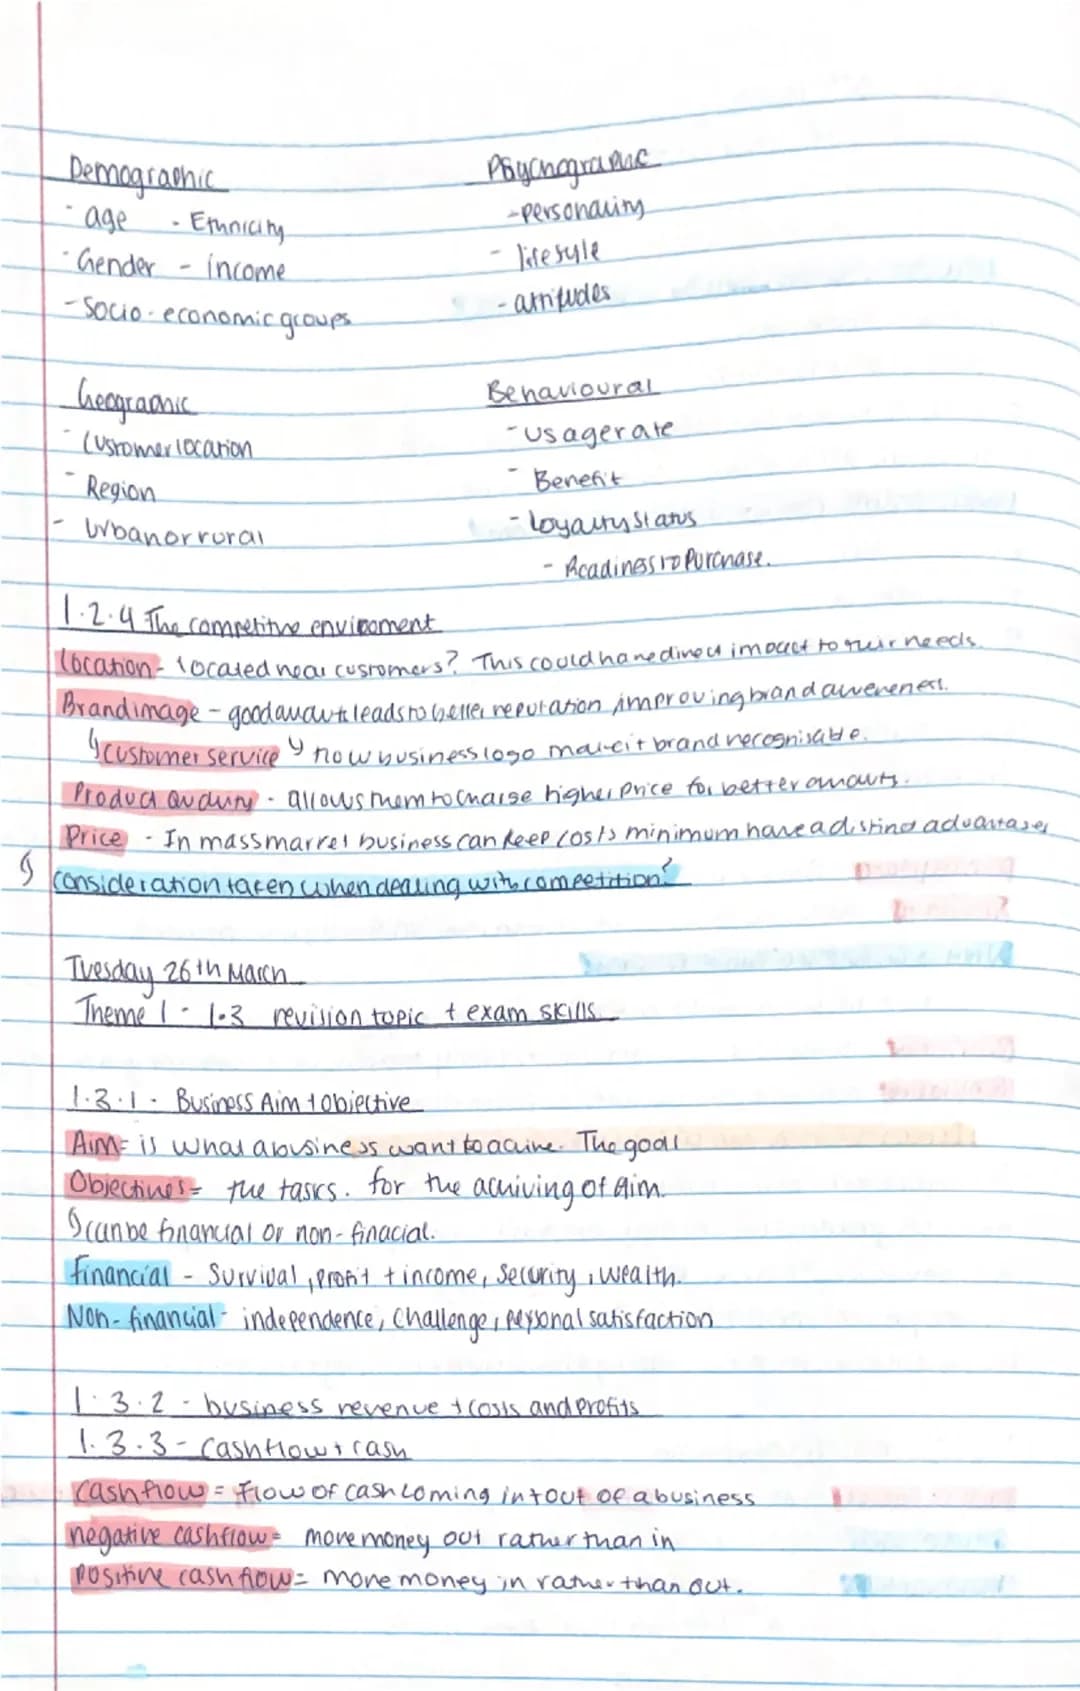 Demographic
- age - Ethnicity
- Gender - income
- Socio-economic groups
Psychographic
- personality
- lifesyle
- attitudes
Geographic
- Customer location
- Region
- Urban or rural
Behavioural
- usage rate
- Benefit
- Loyalty Status
- Readiness to Purchase.
1.2.4 The competitive enviroment
Location - located near customers? This could have direct impact to their needs.
Brand image - good leads to better reputation improving brand awereness.
↳ customer service ↳ how business logo make it brand recognisable.
Product Quality - allows them to charge higher price for better
Price - In mass market business can keep costs minimum have a distinct advantage,
↳ consideration taken when dealing with competition?
Tuesday 26th March
Theme 1 - 1.3 revision topic + exam skills
1.3.1 - Business Aim + objective
Aim = is what a business want to acuive. The goal
Objectives = the tasks. for the achiving of Aim.
↳ can be financial or non-finacial.
financial - Survival, profit + income, Security, wealth.
Non-financial - independence, Challenge, personal satisfaction
1.3.2 - business revenue + costs and profits
1.3.3 - Cashflow + cash
Cash flow = Flow of cash coming in + out of a business
negative cashflow = more money out rather than in
positive cash flow = more money in rather than out.